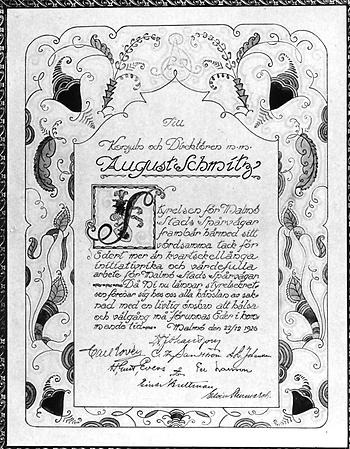 Till
Konsuln och Direktören m.m.
August Schmitz
Styrelsen för Malmö
Stads Spårvägar
frambär härmed sitt
vördsamma tack för
Edert mer än kvartsekellånga
initiativrika och värdefulla
arbete för Malmö Stads Spårvägar
Då Ni nu lämnar styrelsekret-
sen förenar sig hos oss alla känslan av sak-
nad med en livlig önskan att hälsa
och välgång må förunnas Eder i kom-
mande tider. Malmö den 23/12 1920
Carl Lovén
Einar Hultman